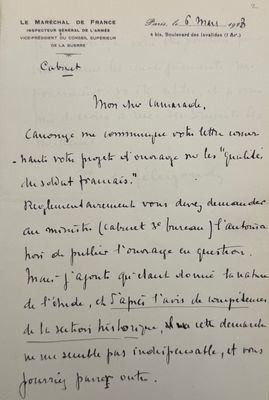 2
LE MARÉCHAL DE FRANCE
INSPECTEUR GÉNÉRAL DE L'ARMÉE
VICE-PRÉSIDENT DU CONSEIL SUPÉRIEUR
DE LA GUERRE
Paris, le 6 Mars 1923
4 bis, Boulevard des Invalides (7e Arr.)
Cabinet
Mon cher Camarade,
Canonge me communique votre lettre concer
-nant votre projet d'ouvrage sur les "qualités
du soldat français."
Réglementairement vous devez demander
au ministre (cabinet 3e bureau) l'autorisa
tion de publier l'ouvrage en question.
Mais j'ajoute qu'étant donné la nature
de l'étude, et d'après l'avis de compétences
de la section historique, cette demande
ne me semble pas indispensable, et vous
pourriez passer outre.